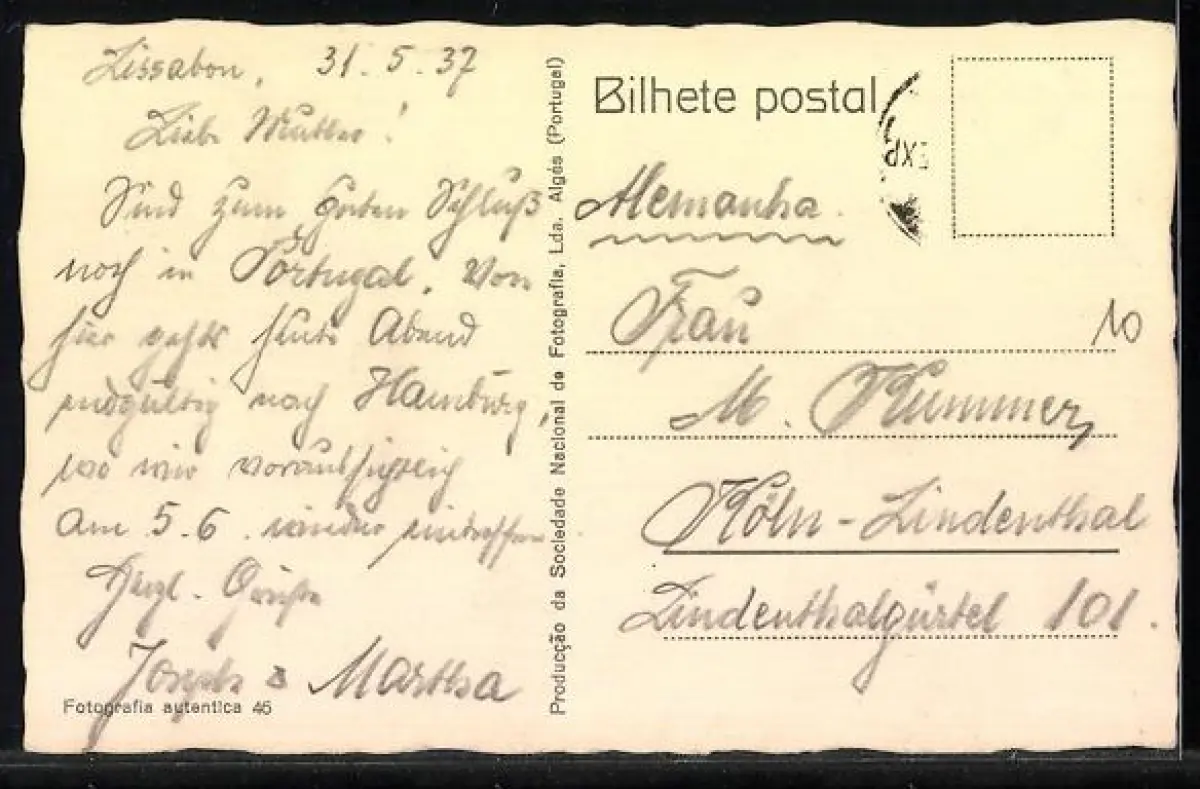 Lissabon, 31.5.37
Liebe Mutter!
Sind zum guten Schluß
noch in Portugal. Von
hier gehts heute Abend
endgültig nach Hamburg,
wo wir voraussichtlich
am 5.6. wieder eintreffen
Herzl. Grüße
Joseph & Martha
Fotografia autentica 46
Producção da Sociedade Nacional de Fotografia, Lda. Algés (Portugal)
Bilhete postal
EXP
Alemanha.
Frau
10
M. Kummer,
Köln-Lindenthal
Lindenthalgürtel 101.